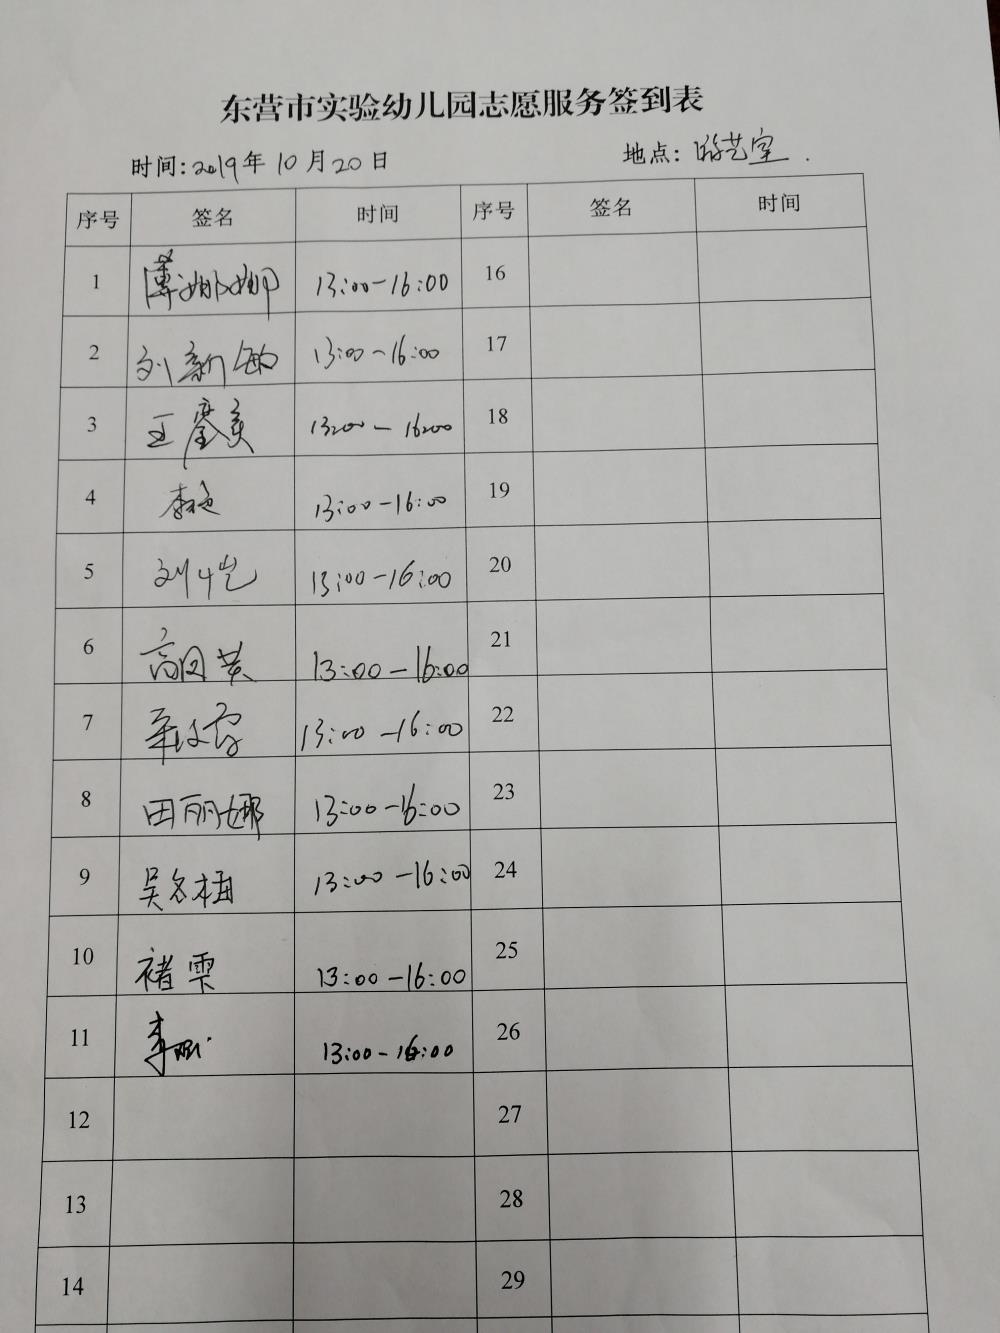 东营市实验幼儿园志愿服务签到表
时间:2019年10月20日 地点:游艺室.
序号 签名 时间 序号 签名 时间
1 薄娜娜 13:00-16:00 16
2 刘新敏 13:00-16:00 17
3 王 13:00-16:00 18
4 李 13:00-16:00 19
5 刘恺 13:00-16:00 20
6 高风英 13:00-16:00 21
7 13:00-16:00 22
8 田丽娜 13:00-16:00 23
9 吴冬梅 13:00-16:00 24
10 褚雯 13:00-16:00 25
11 李 13:00-16:00 26
12 27
13 28
14 29